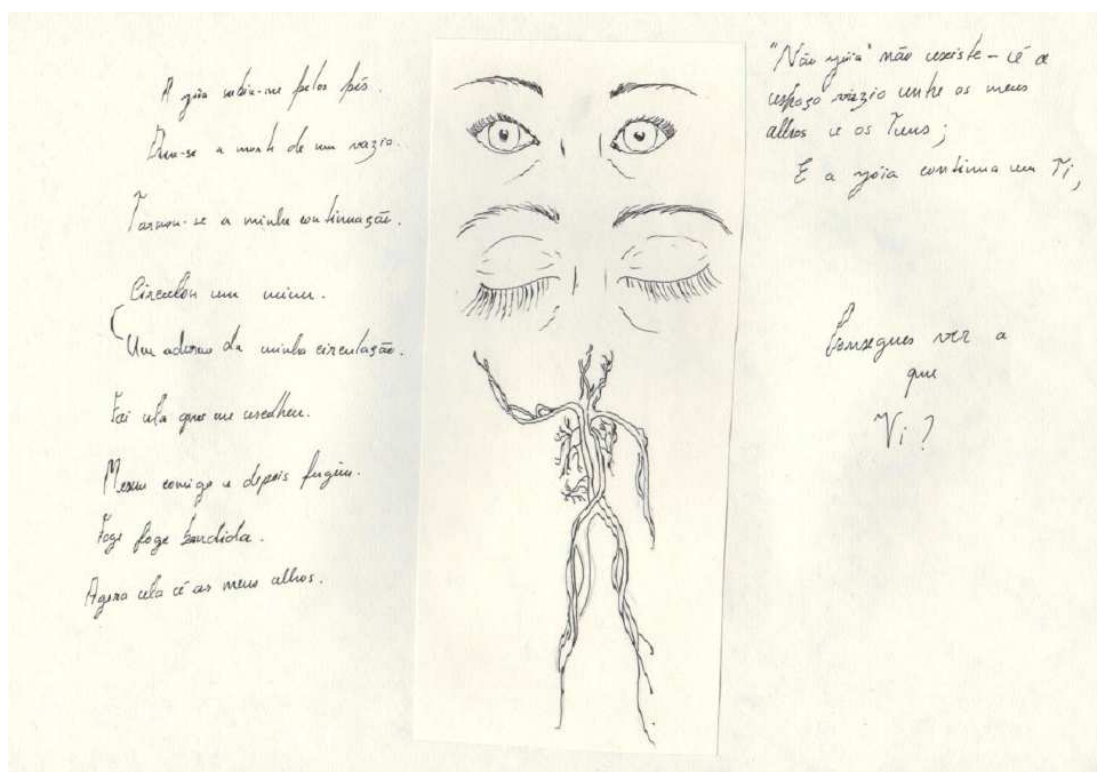 A jóia subiu-me pelos pés.
Deu-se a morte de um vazio.
Tornou-se a minha continuação.
Circulou em mim.
Um adorno da minha circulação.
Foi ela que me escolheu.
Mexeu comigo e depois fugiu.
Foge foge bandida.
Agora ela é os meus olhos.
"Não jóia" não existe - é o
espaço vazio entre os meus
olhos e os Teus;
E a jóia continua em Ti,
Consegues ver o
que
Vi?